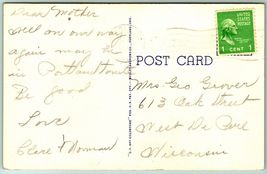 Dear Mother
Well on our way
again may be
in Portland tonite
Be good
Love
Clare & Norman
POST CARD
UNITED STATES
POSTAGE
1 CENT 1
Mrs Geo Grover
613 Oak Street
West De Pere
Wisconsin